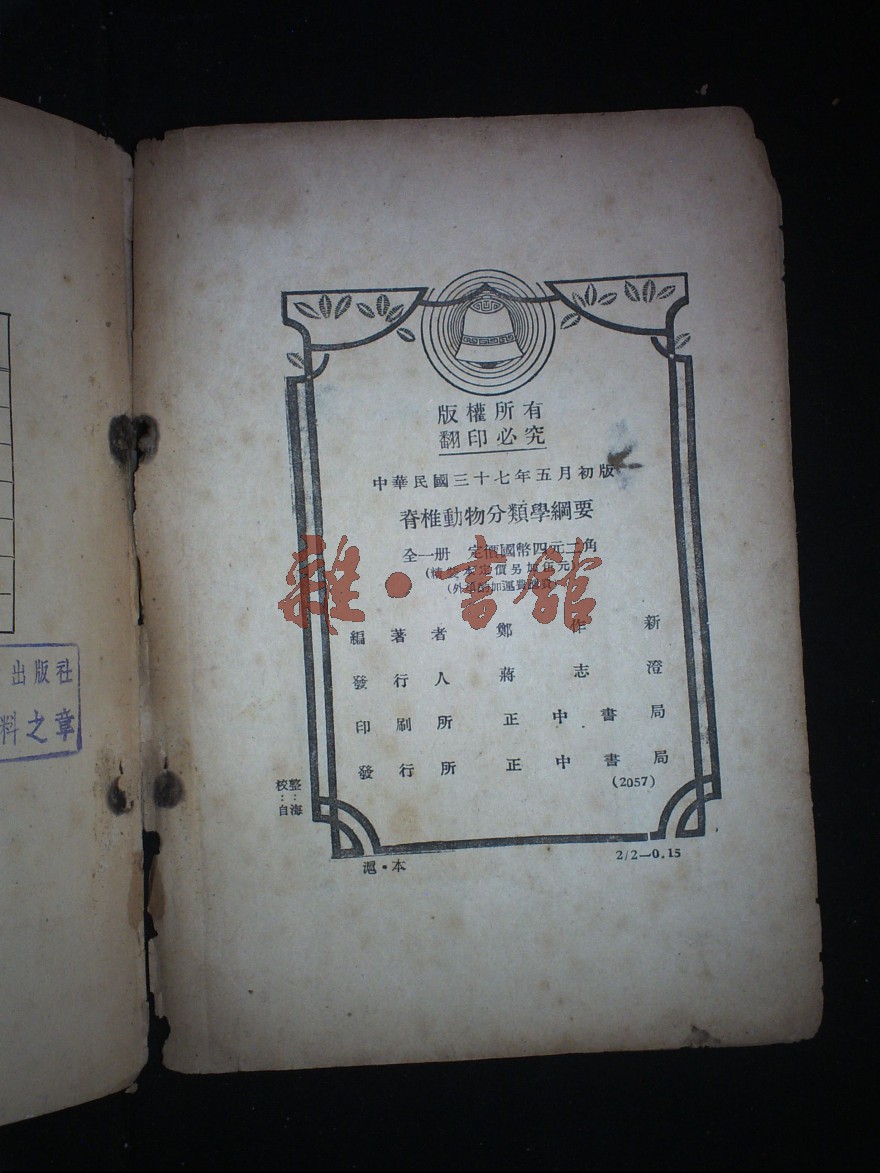 出版社
料之章
版權所有
翻印必究
中華民國三十七年五月初版
脊椎動物分類學綱要
全一册 定價國幣四元二角
定價另加
雜·書館
編著者 鄭作新
發行人 蔣志澄
印刷所 正中書局
發行所 正中書局
(2057)
校整
：：
自海
滬·本
2/2—0.15